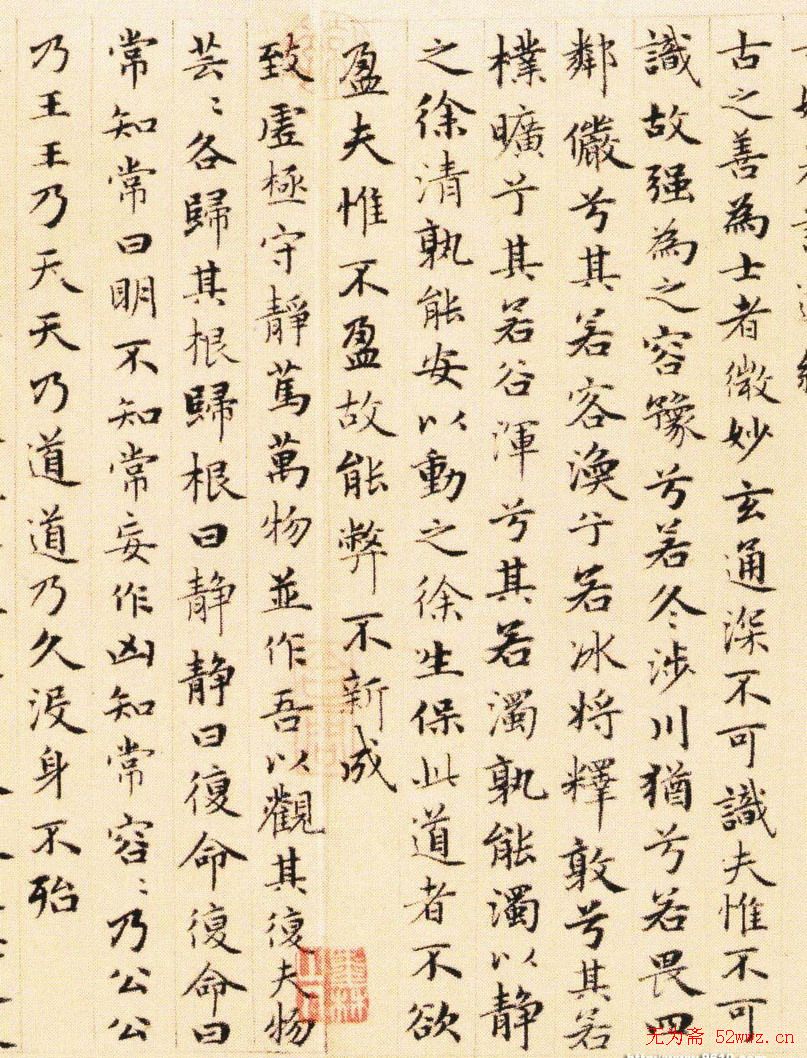 古之善為士者微妙玄通深不可識夫惟不可
識故强為之容豫兮若冬涉川猶兮若畏四
鄰儼兮其若客渙兮若冰將釋敦兮其若
樸曠兮其若谷渾兮其若濁孰能濁以静
之徐清孰能安以動之徐生保此道者不欲
盈夫惟不盈故能弊不新成
致虛極守靜篤萬物並作吾以觀其復夫物
芸〻各歸其根歸根曰静静曰復命復命曰
常知常曰明不知常妄作凶知常容〻乃公公
乃王王乃天天乃道道乃久沒身不殆
无为斋 52wwz.cn